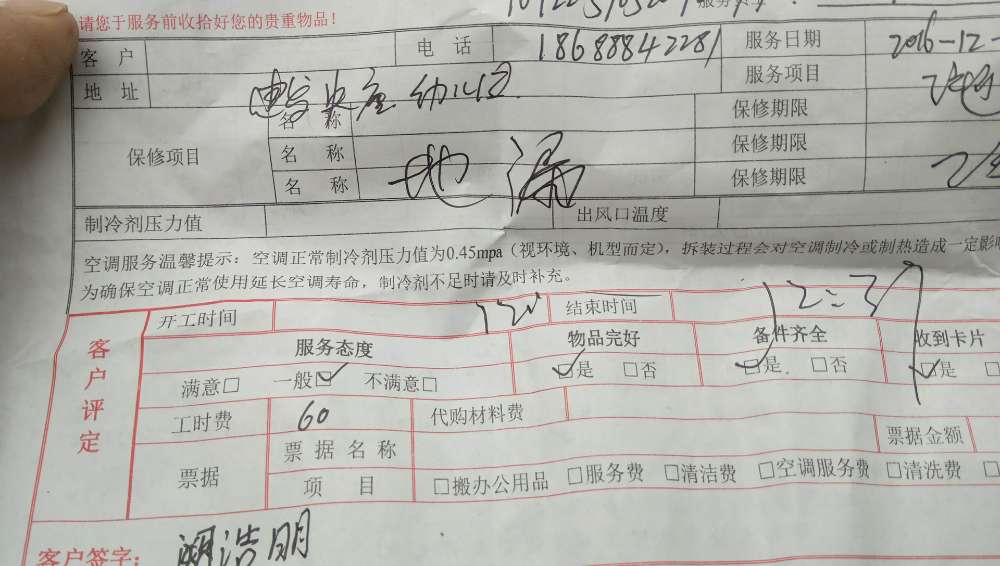 请您于服务前收拾好您的贵重物品！
客 户 电 话 18688842281 服务日期 2016-12-
地 址 幼儿园 服务项目
保修项目 名 称 保修期限
名 称 地漏 保修期限
名 称 保修期限
制冷剂压力值 出风口温度
空调服务温馨提示：空调正常制冷剂压力值为0.45mpa（视环境、机型而定），拆装过程会对空调制冷或制热造成一定影
为确保空调正常使用延长空调寿命，制冷剂不足时请及时补充。
客户评定
开工时间 结束时间 12:3
服务态度 物品完好 备件齐全 收到卡片
满意□ 一般☑ 不满意□ ☑是 □否 ☑是. □否 ☑是
工时费 60 代购材料费
票据 票据名称 票据金额
项 目 □搬办公用品 □服务费 □清洁费 □空调服务费 □清洗费
客户签字: 浩明